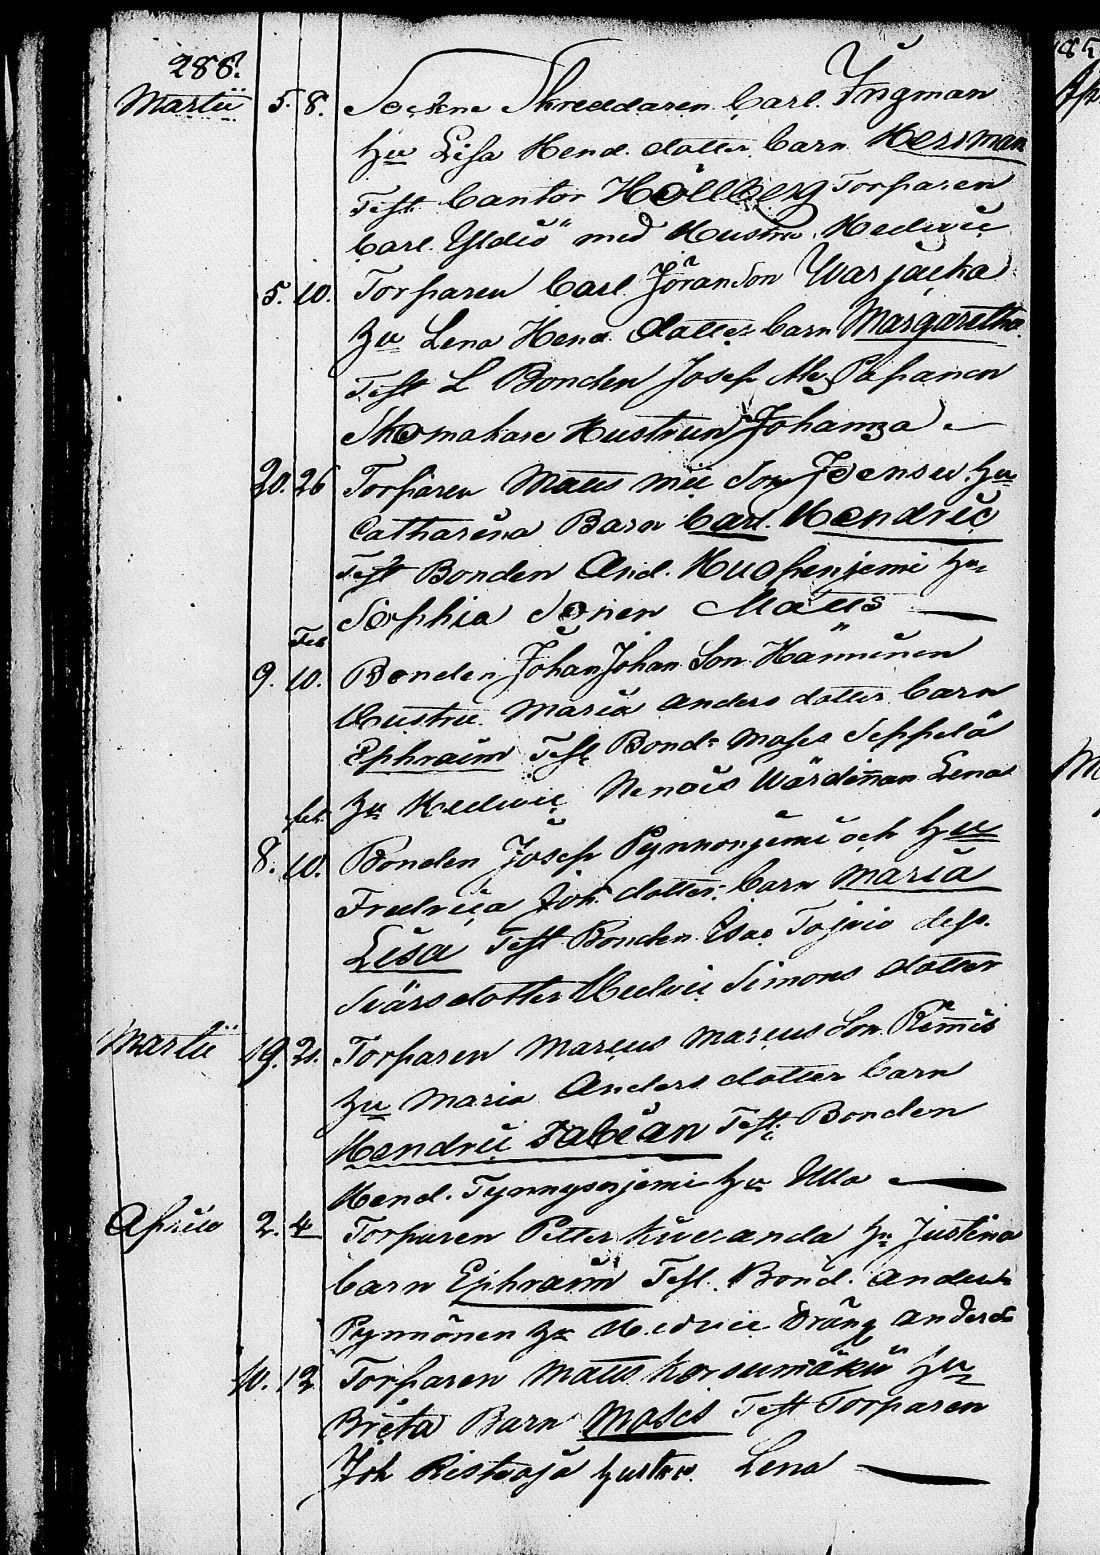 288.
Martii 5. 8. Sockne Skreddaren Carl Ingman
hu Lisa Hend. dotter barn Herman
Test Cantor Höllberg Torparen
Carl med Hustru Hedvic
5. 10. Torparen Carl Jöranson Warjacka
hu Lena Hend. dotter barn Margaretha
Test L Bonden Josef
Skomakare Hustrun Johanna
20. 26 Torparen Matts son hu
Catharina Barn Carl Hendric
Test Bonden And. Kuopenjemi hu
Sophia Sonen Matts
Feb
9. 10. Bonden Johan Johan Son Hänninen
Hustru Maria Anders dotter barn
Ephraim Test Bond. Moses Seppelä
hu Hedvic Lena
feb.
8. 10. Bonden Josef Pynnonjemi och hu
Fredrica Joh. dotter barn Maria
Lisa Test Bonden Esac Tojvio dess.
Svärsdotter Hedvic Simons dotter
Martii 19. 21. Torparen Marcus Marcus Son
hu Maria Anders dotter barn
Hendric Fabian Test Bonden
Hend. hu Ulla
Aprili 2. 4 Torparen Petter hu Justina
barn Ephraim Test. Bond. Anders
Pynnönen hu Hedvic Dräng Anders
10. 12 Torparen Matts Korsumäki hu
Breta Barn Moses Test Torparen
Joh Ristioja hustru Lena